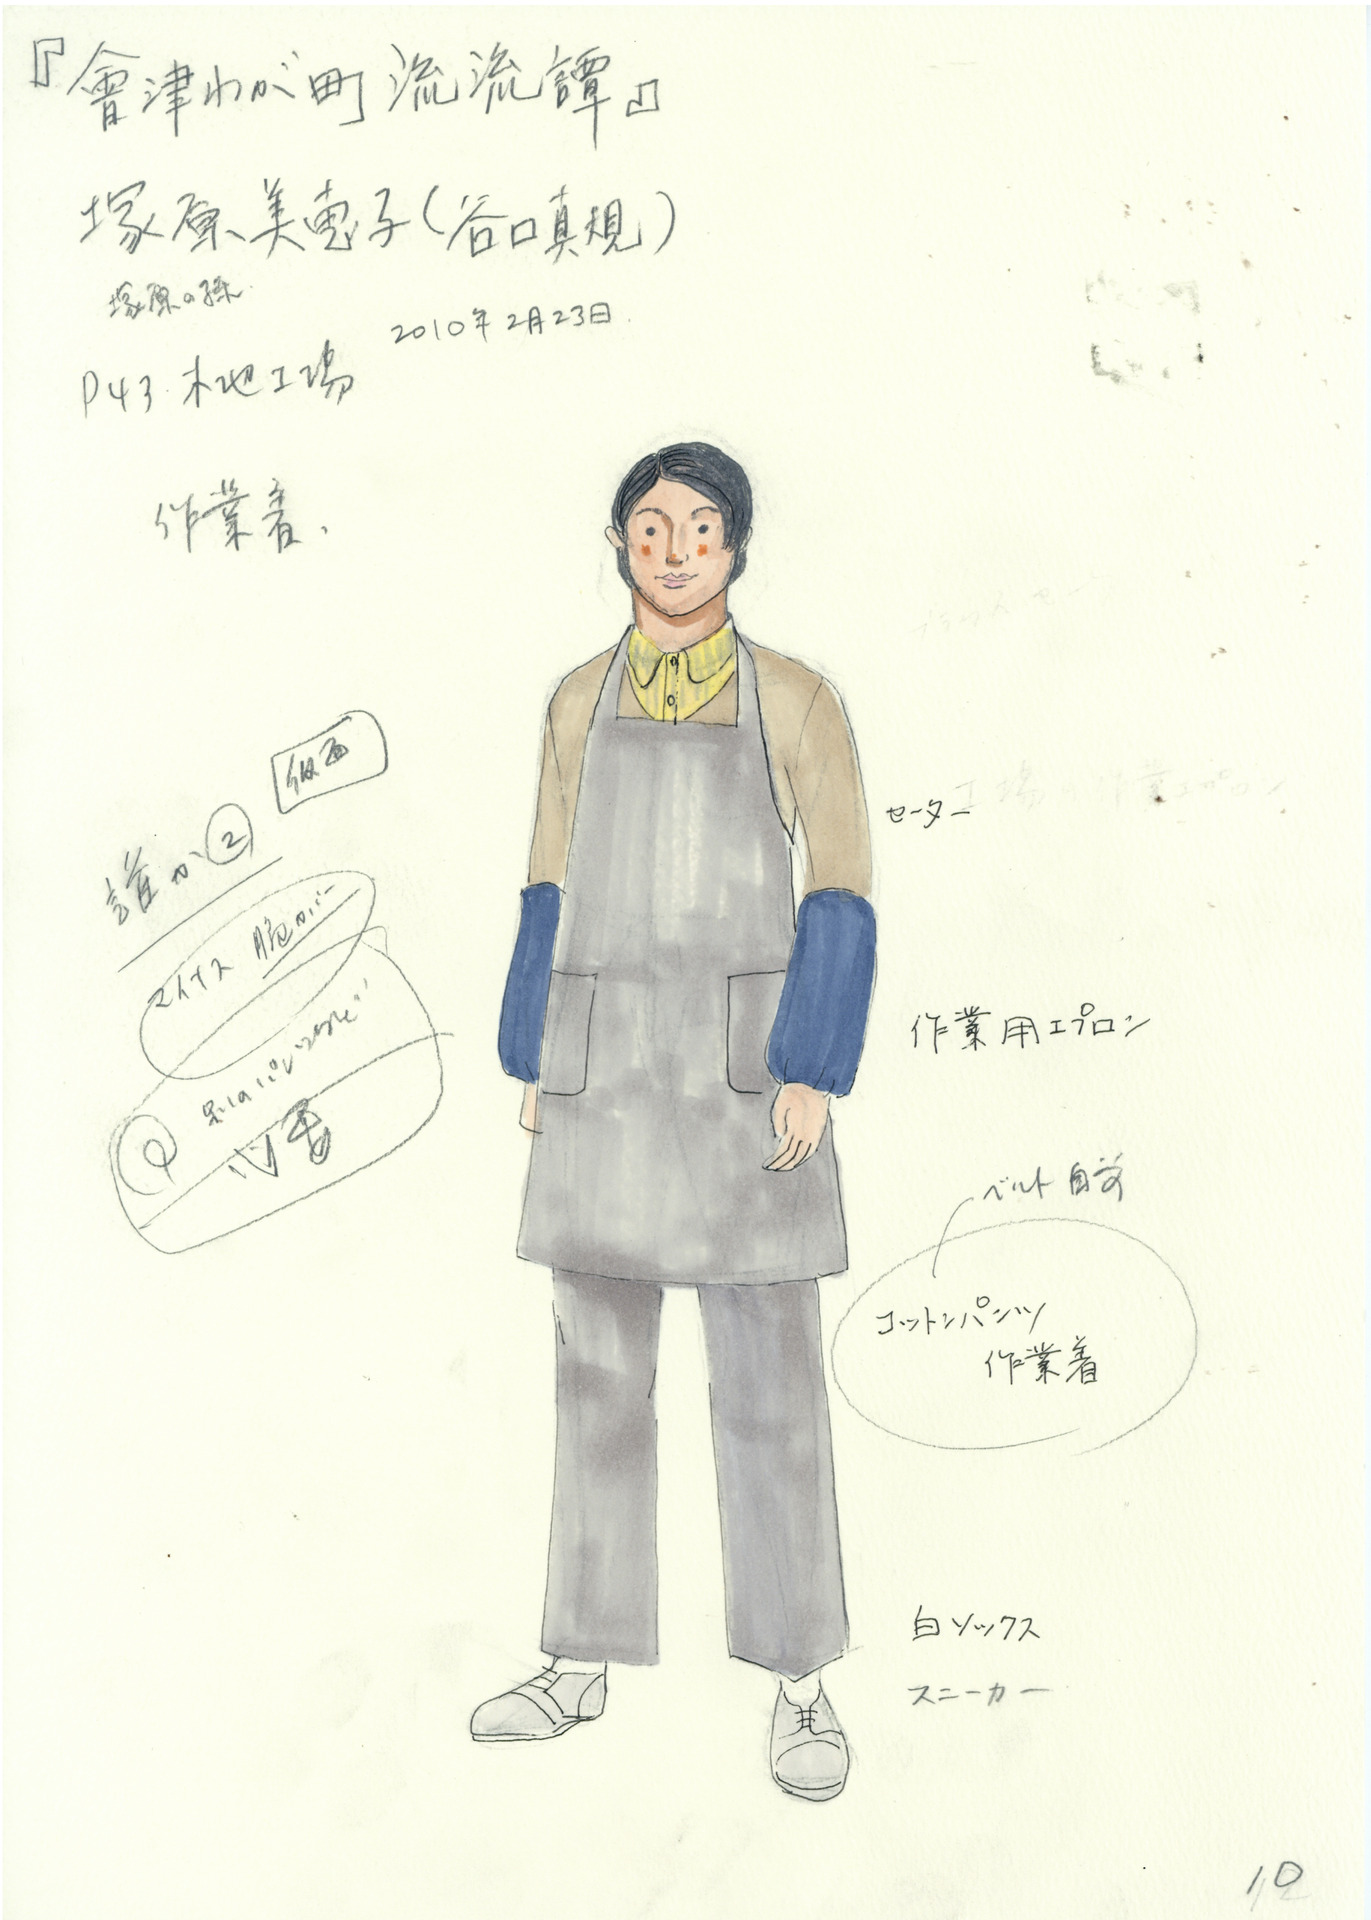 『會津わが町流流譚』
塚原美恵子(谷口真規)
塚原の孫
2010年2月23日
P43.木地工場
作業着.
仮面
誰か②
マイナス 腕カバー
セーター
工場の作業エプロン
作業用エプロン
ベルト
コットンパンツ
作業着
白ソックス
スニーカー
10